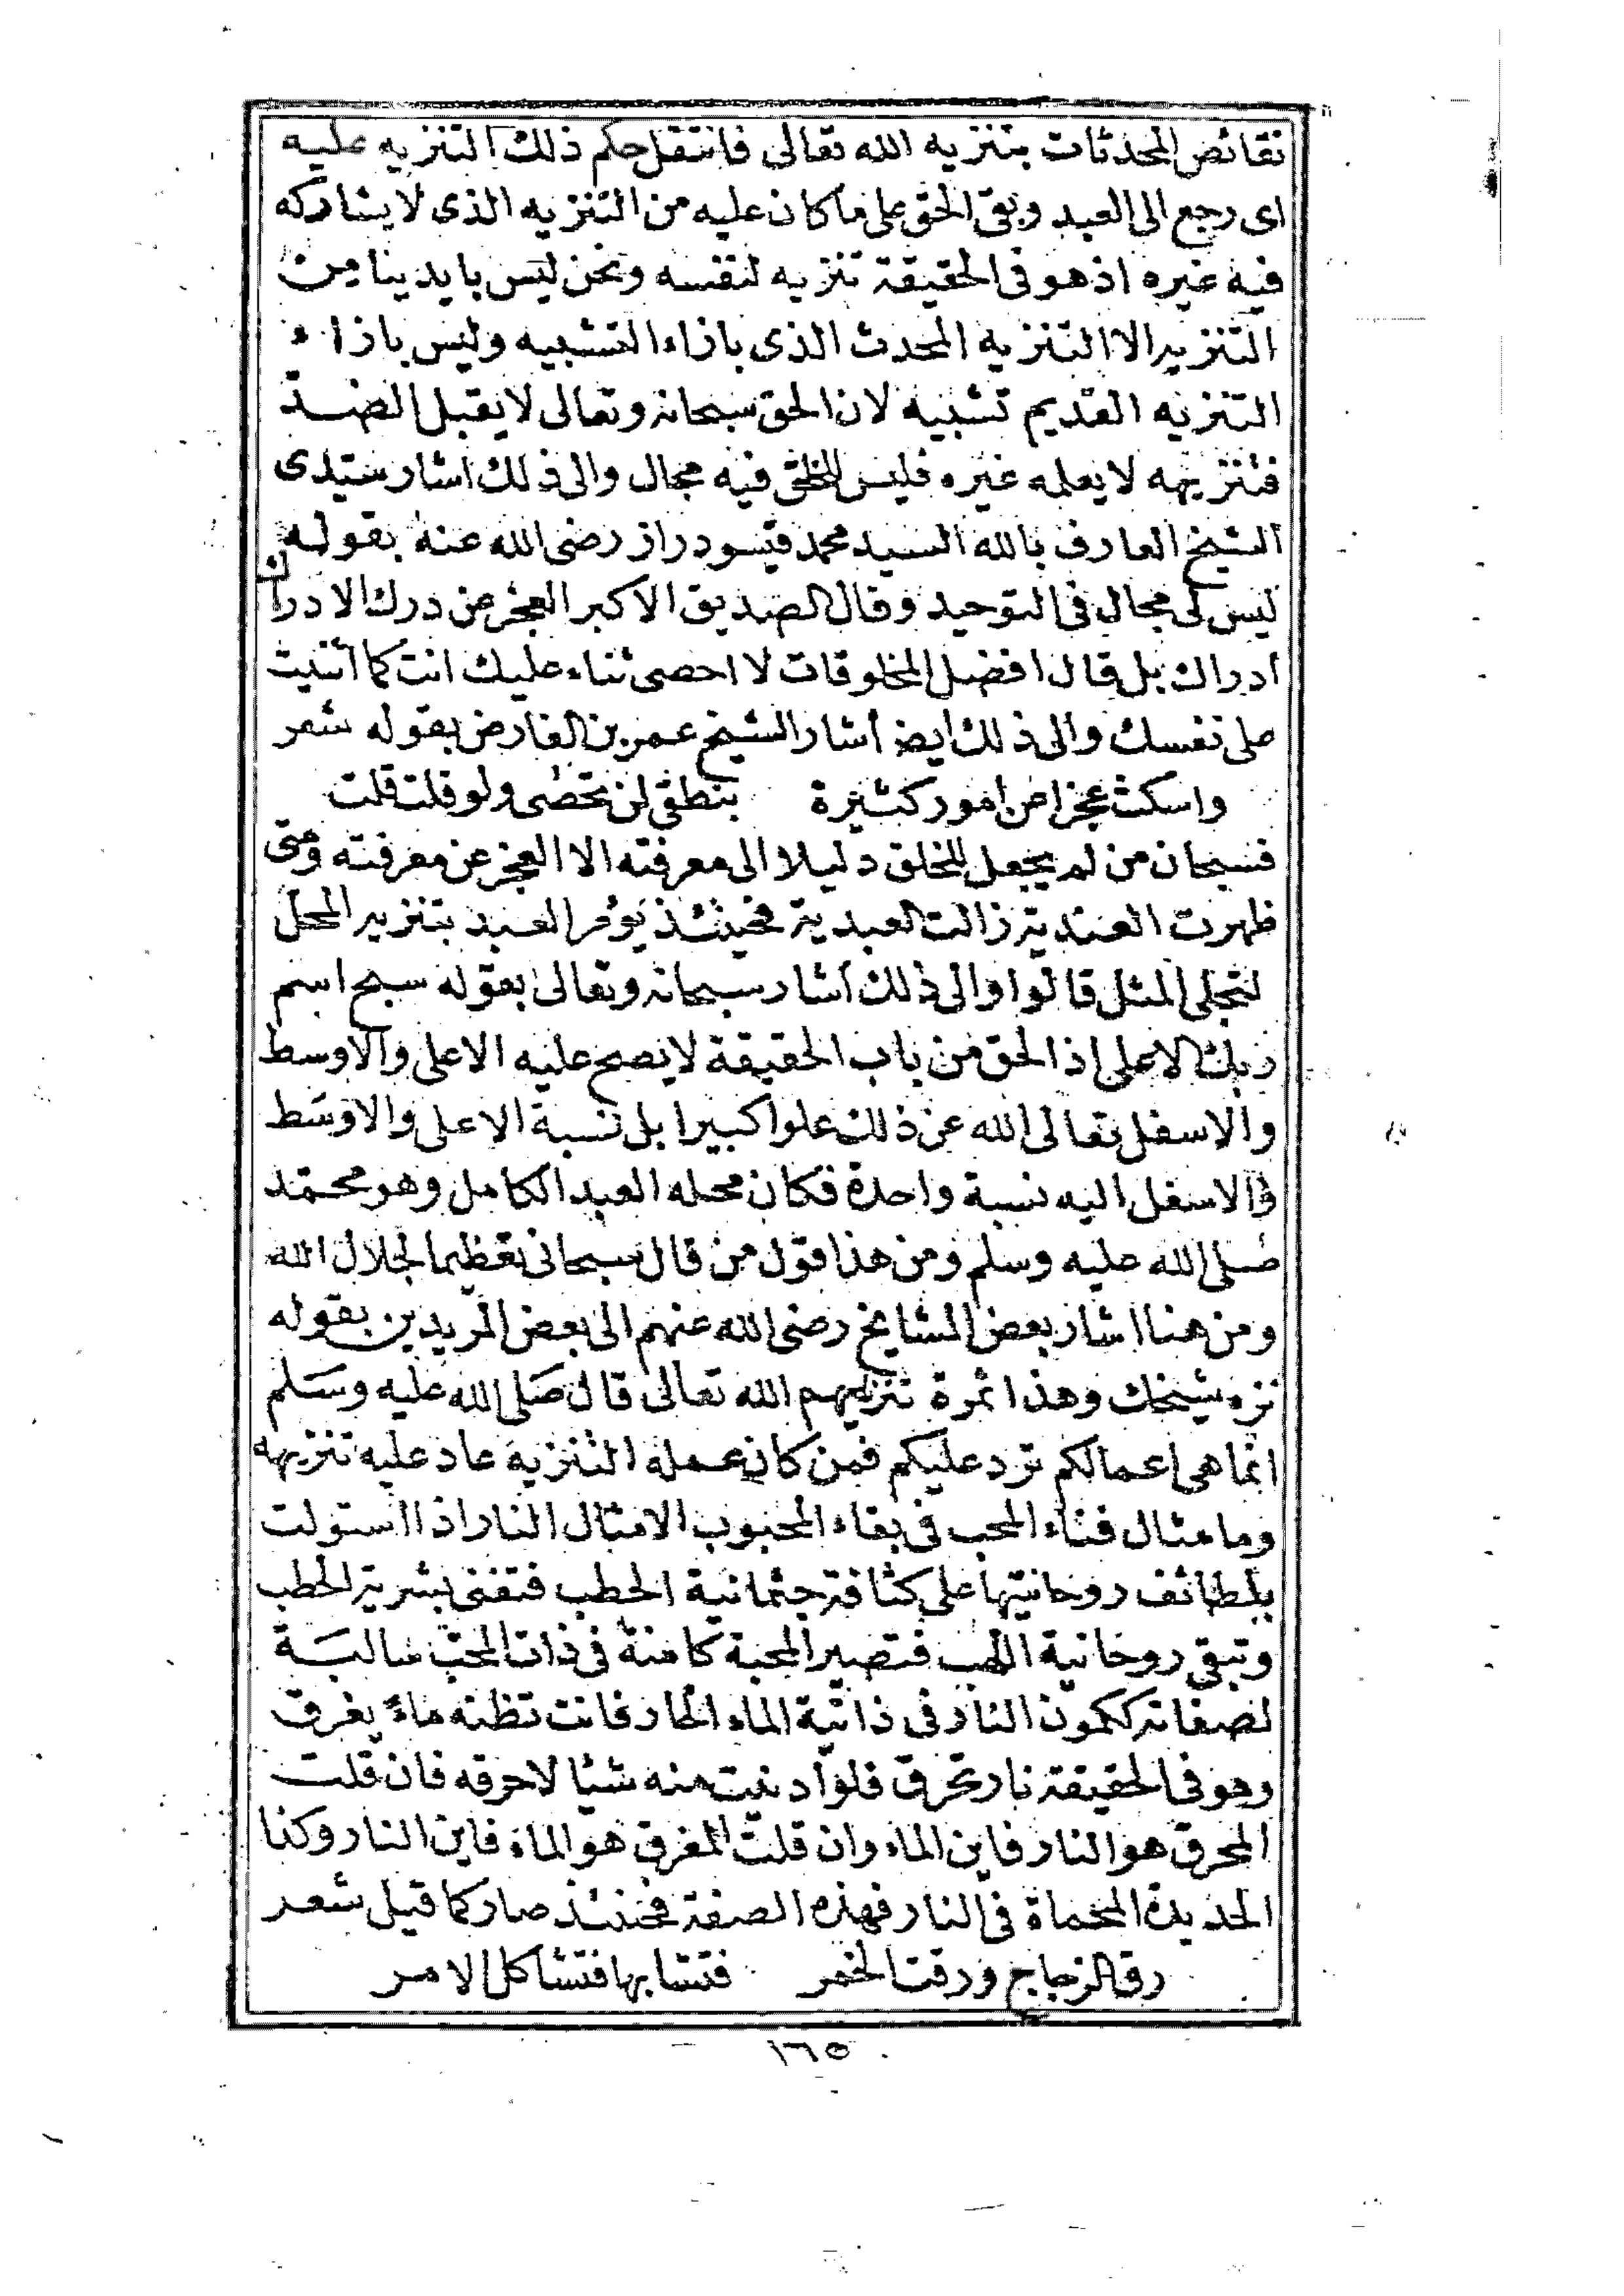 نقائص المحدثات بتنزيه الله تعالى فانتقل حكم ذلك التنزيه عليه
اى رجع الى العبد وبقى الحق على ما كان عليه من التنزيه الذى لا يشاركه
فيه غيره اذ هو فى الحقيقة تنزيه لنفسه ونحن ليس بايدينا من
التنزيه الا التنزيه المحدث الذى بازاء التشبيه وليس بازاء
التنزيه القديم تشبيه لان الحق سبحانه وتعالى لا يقبل الضد
فتنزيهه لا يعلمه غيره فليس للخلق فيه مجال والى ذلك اشار سيدى
الشيخ العارف بالله السيد محمد قيسودراز رضى الله عنه بقوله
ليس لى مجال فى التوحيد وقال الصديق الاكبر العجز عن درك الادراك
ادراك بل قال افضل المخلوقات لا احصى ثناء عليك انت كما أثنيت
على نفسك والى ذلك ايضا أشار الشيخ عمر بن الفارض بقوله شعر
واسكت عجزا عن امور كثيرة بنطقى لن تحصى ولو قلت قلت
فسبحان من لم يجعل للخلق دليلا الى معرفته الا العجز عن معرفته ومتى
ظهرت العندية زالت العبدية فحينئذ يؤمر العبد بتنزيه المحل
لتجلى المثل قالوا والى ذلك أشار سبحانه وتعالى بقوله سبح اسم
ربك الاعلى اذ الحق من باب الحقيقة لا يصح عليه الاعلى والاوسط
والاسفل تعالى الله عن ذلك علوا كبيرا بل نسبة الاعلى والاوسط
والاسفل اليه نسبة واحدة فكان محله العبد الكامل وهو محمد
صلى الله عليه وسلم ومن هذا قول من قال سبحانى تعظيما لجلال الله
ومن هنا اشار بعض المشايخ رضى الله عنهم الى بعض المريدين بقوله
نزه شيخك وهذا ثمرة تنزيههم الله تعالى قال صلى الله عليه وسلم
انما هى اعمالكم ترد عليكم فمن كان عمله التنزيه عاد عليه تنزيهه
وما مثال فناء المحب فى بقاء المحبوب الا مثال النار اذا استولت
بلطائف روحانيتها على كثافة جثمانية الحطب فتفنى بشرية الحطب
وتبقى روحانية اللهب فتصير المحبة كامنة فى ذات المحب سالبة
لصفاته ككمون النار فى ذاتية الماء الحار فانت تظنه ماءً يغرق
وهو فى الحقيقة نار تحرق فلو أدنيت منه شيئا لاحرقه فان قلت
المحرق هو النار فاين الماء وان قلت المغرق هو الماء فاين النار وكذا
الحديدة المحماة فى النار فهذه الصفة فحينئذ صار كما قيل شعر
رق الزجاج ورقت الخمر فتشابها فتشاكل الامر
١٦٥